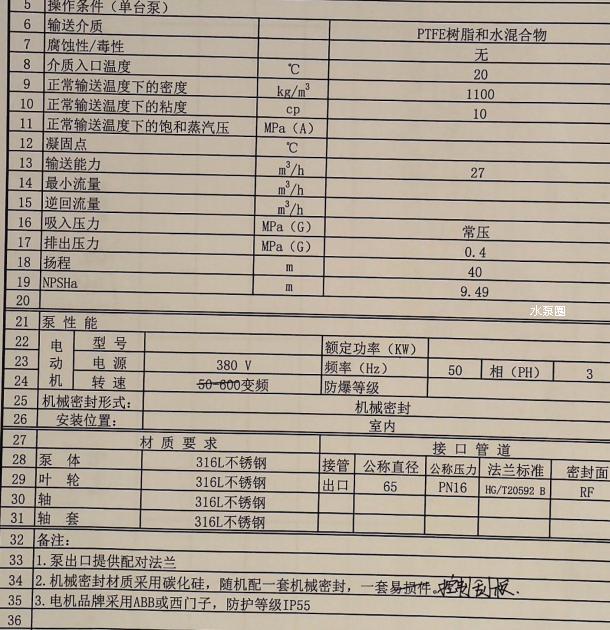 5 操作条件（单台泵）
6 输送介质 PTFE树脂和水混合物
7 腐蚀性/毒性 无
8 介质入口温度 ℃ 20
9 正常输送温度下的密度 kg/m³ 1100
10 正常输送温度下的粘度 cp 10
11 正常输送温度下的饱和蒸汽压 MPa（A）
12 凝固点 ℃
13 输送能力 m³/h 27
14 最小流量 m³/h
15 逆回流量 m³/h
16 吸入压力 MPa（G） 常压
17 排出压力 MPa（G） 0.4
18 扬程 m 40
19 NPSHa m 9.49
20
水泵圈
21 泵 性 能
22 电动机 型 号 额定功率（KW）
23 电 源 380 V 频率（Hz） 50 相（PH） 3
24 转 速 50-600变频 防爆等级
25 机械密封形式： 机械密封
26 安装位置： 室内
27 材 质 要 求 接 口 管 道
28 泵 体 316L不锈钢 接管 公称直径 公称压力 法兰标准 密封面
29 叶 轮 316L不锈钢 出口 65 PN16 HG/T20592 B RF
30 轴 316L不锈钢
31 轴 套 316L不锈钢
32 备注：
33 1.泵出口提供配对法兰
34 2.机械密封材质采用碳化硅，随机配一套机械密封，一套易损件。
35 3.电机品牌采用ABB或西门子，防护等级IP55
36